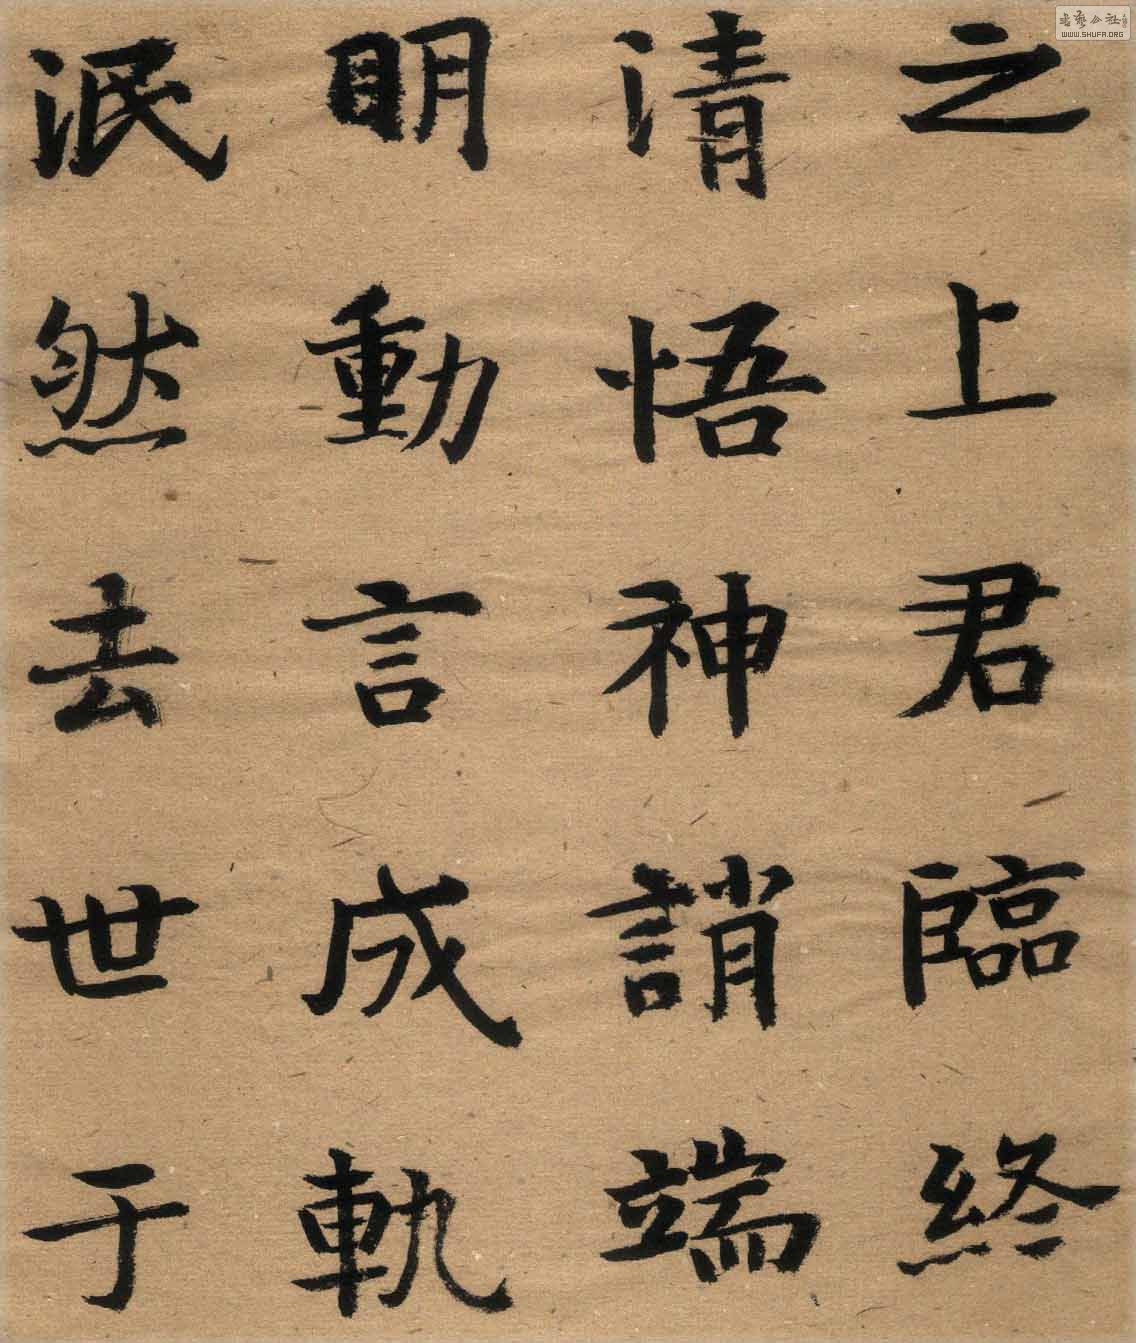 之上君臨終
清悟神誚端
明動言成軌
泯然去世于
WWW.SHUFA.ORG